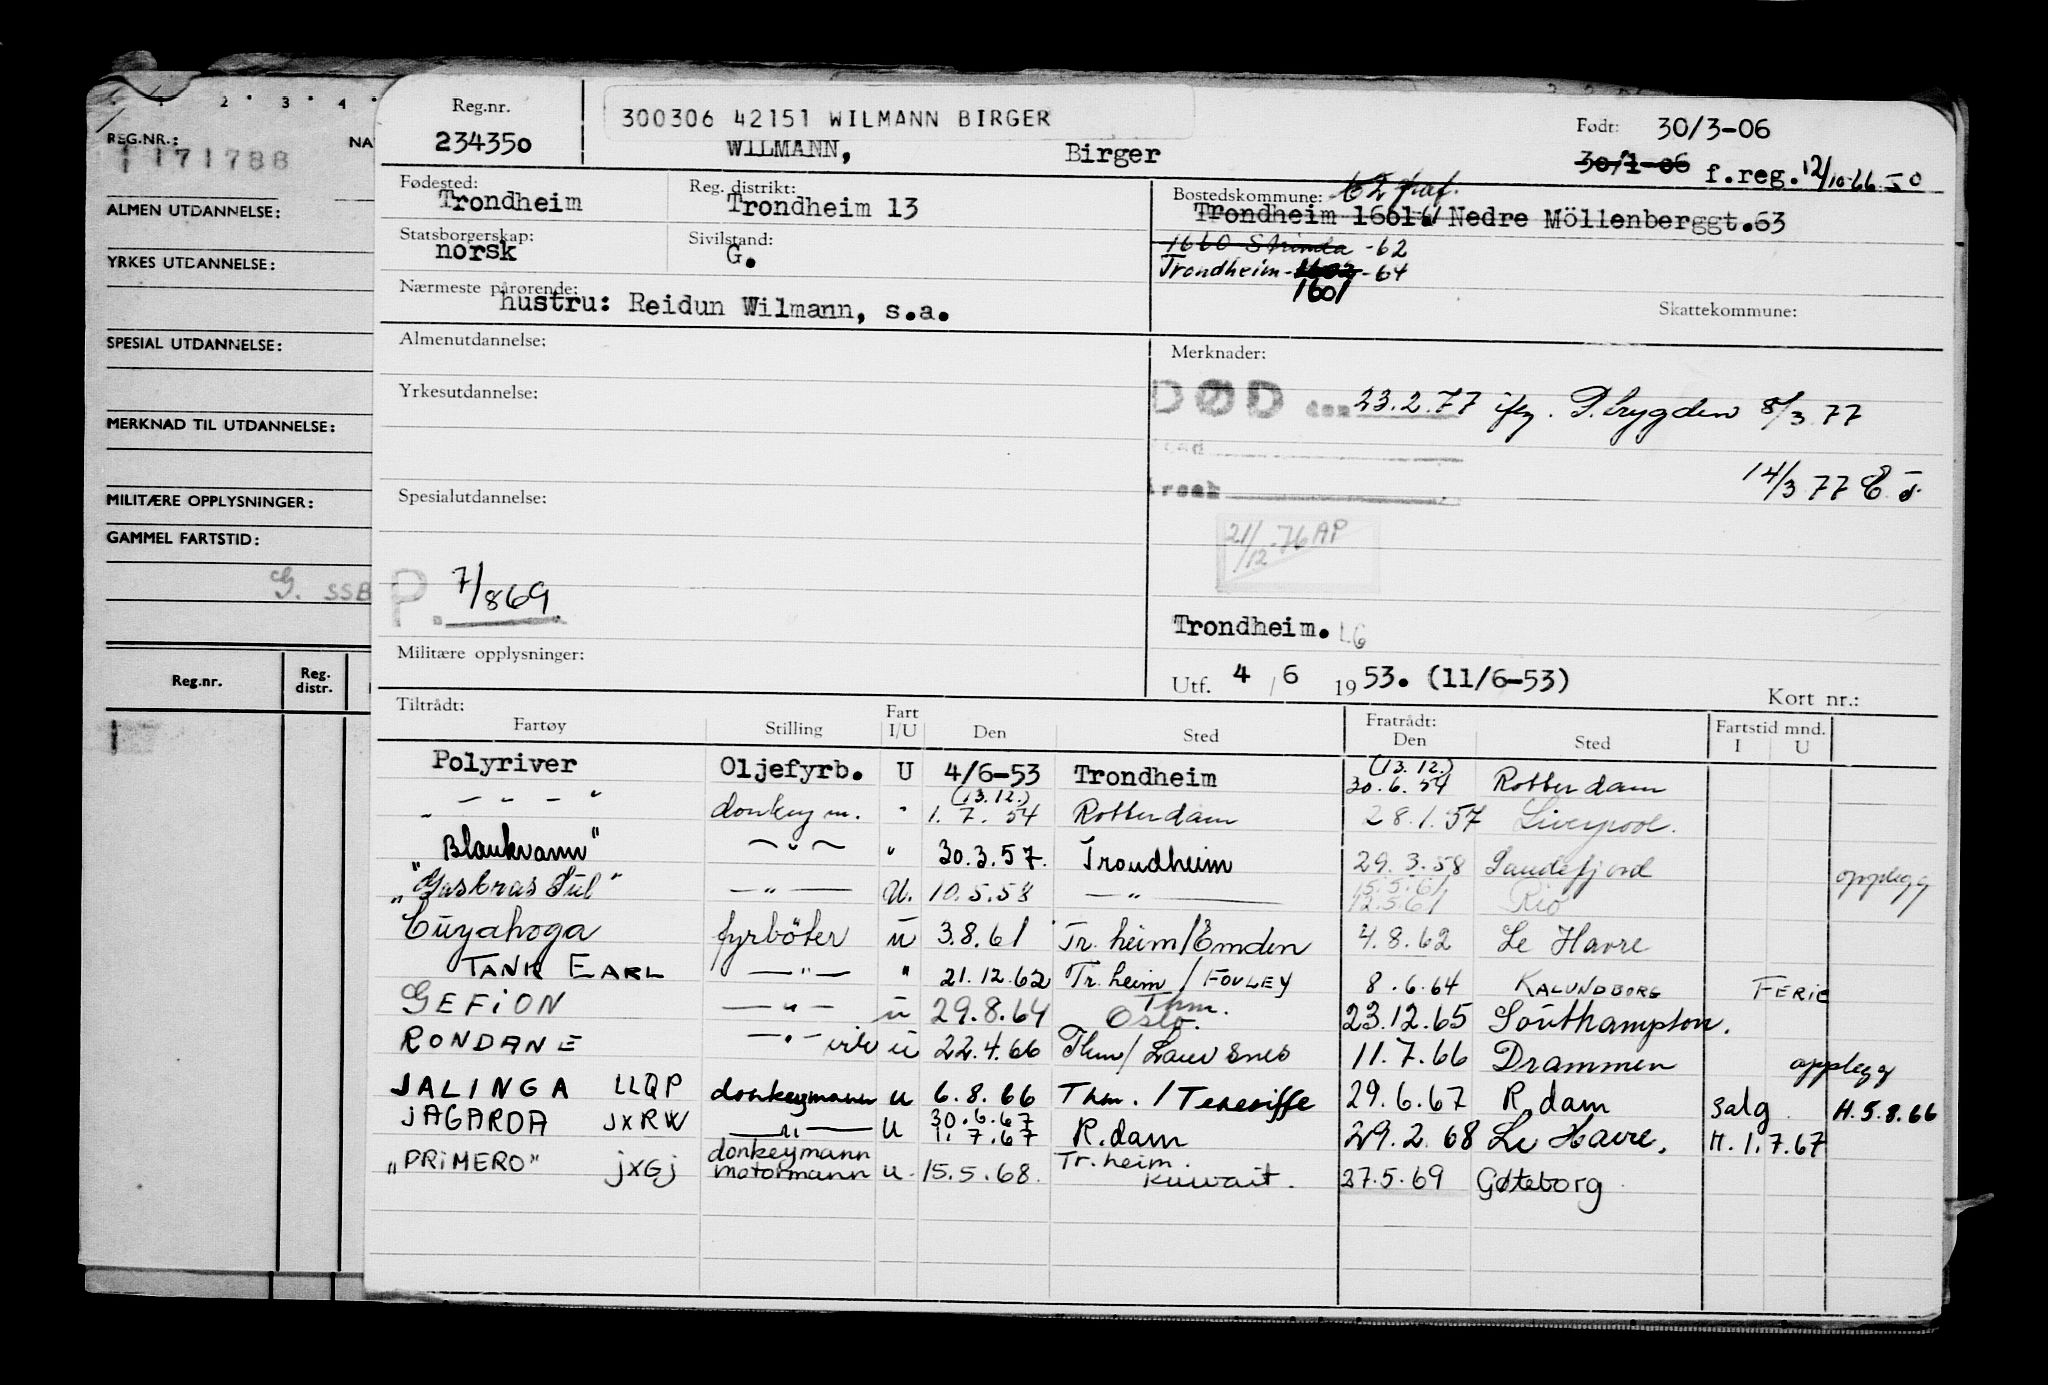 1 2 3 4
REG.NR.:
171788
ALMEN UTDANNELSE:
YRKES UTDANNELSE:
SPESIAL UTDANNELSE:
MERKNAD TIL UTDANNELSE:
MILITÆRE OPPLYSNINGER:
GAMMEL FARTSTID:
Reg.nr. Reg. distr.
Reg.nr.
234350
300306 42151 WILMANN BIRGER
WILMANN, Birger
Født: 30/3-06
30/1-06 f.reg. 12/10-66
Fødested: Trondheim
Reg. distrikt: Trondheim 13
Bostedskommune:
Trondheim 1601 Nedre Möllenberggt.63
Statsborgerskap: norsk
Sivilstand: G.
1660 Strinda -62
Trondheim-1602-64
1601
Nærmeste pårørende: hustru: Reidun Wilmann, s.a.
Skattekommune:
Almenutdannelse:
Merknader:
Yrkesutdannelse:
DØD den 23.2.77 ifg. P.trygden 8/3 77
14/3 77
Spesialutdannelse:
21/12-76 AP
P. 7/869
Trondheim.
Militære opplysninger:
Utf. 4/6 1953. (11/6-53)
Kort nr.:
Tiltrådt: Fratrådt: Fartstid mnd.
Fartøy Stilling Fart I/U Den Sted Den Sted I U
Polyriver Oljefyrb. U 4/6-53 Trondheim (13.12.) 30.6.54 Rotterdam
" — " — " donkeym. " (13.12.) 1.7.54 Rotterdam 28.1.57 Liverpool.
"Blankvann" — " — " 30.3.57. Trondheim 29.3.58 Sandefjord
— " — U. 10.5.58 — " — 15.5.61 12.5.61 Rio opplegg
Cuyahoga fyrböter u 3.8.61 Tr.heim/Emden 4.8.62 Le Havre
TANK EARL — " — " 21.12.62 Tr.heim / FOVLEY 8.6.64 KALUNDBORG FERIE
GEFION — " — u 29.8.64 Thm. Oslo. 23.12.65 Southampton.
RONDANE — " — u 22.4.66 Thm/ 11.7.66 Drammen opplegg
JALINGA LLQP donkeymann u 6.8.66 Thm. / Teneriffe 29.6.67 R.dam Salg. H.5.8.66
JAGARDA JXRW — " — U 30.6.67 1.7.67 R.dam 29.2.68 Le Havre. H.1.7.67
"PRIMERO" JXGJ donkeymann motormann u. 15.5.68. Tr.heim. Kuwait. 27.5.69 Gøteborg